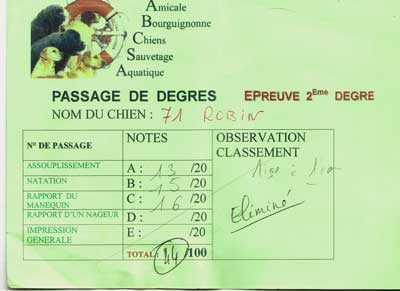 Amicale
Bourguignonne
Chiens
Sauvetage
Aquatique
PASSAGE DE DEGRES EPREUVE 2Eme DEGRE
NOM DU CHIEN : 71 ROBIN
N° DE PASSAGE NOTES OBSERVATION CLASSEMENT
ASSOUPLISSEMENT A : 13 /20
NATATION B : 15 /20
RAPPORT DU MANEQUIN C : 16 /20
RAPPORT D'UN NAGEUR D : /20
IMPRESSION GENERALE E : /20
TOTAL: 44 /100
Eliminé